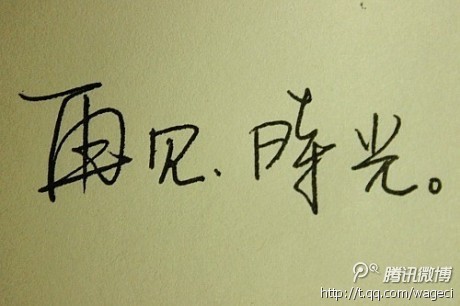 再见、时光。
腾讯微博
http://t.qq.com/wageci